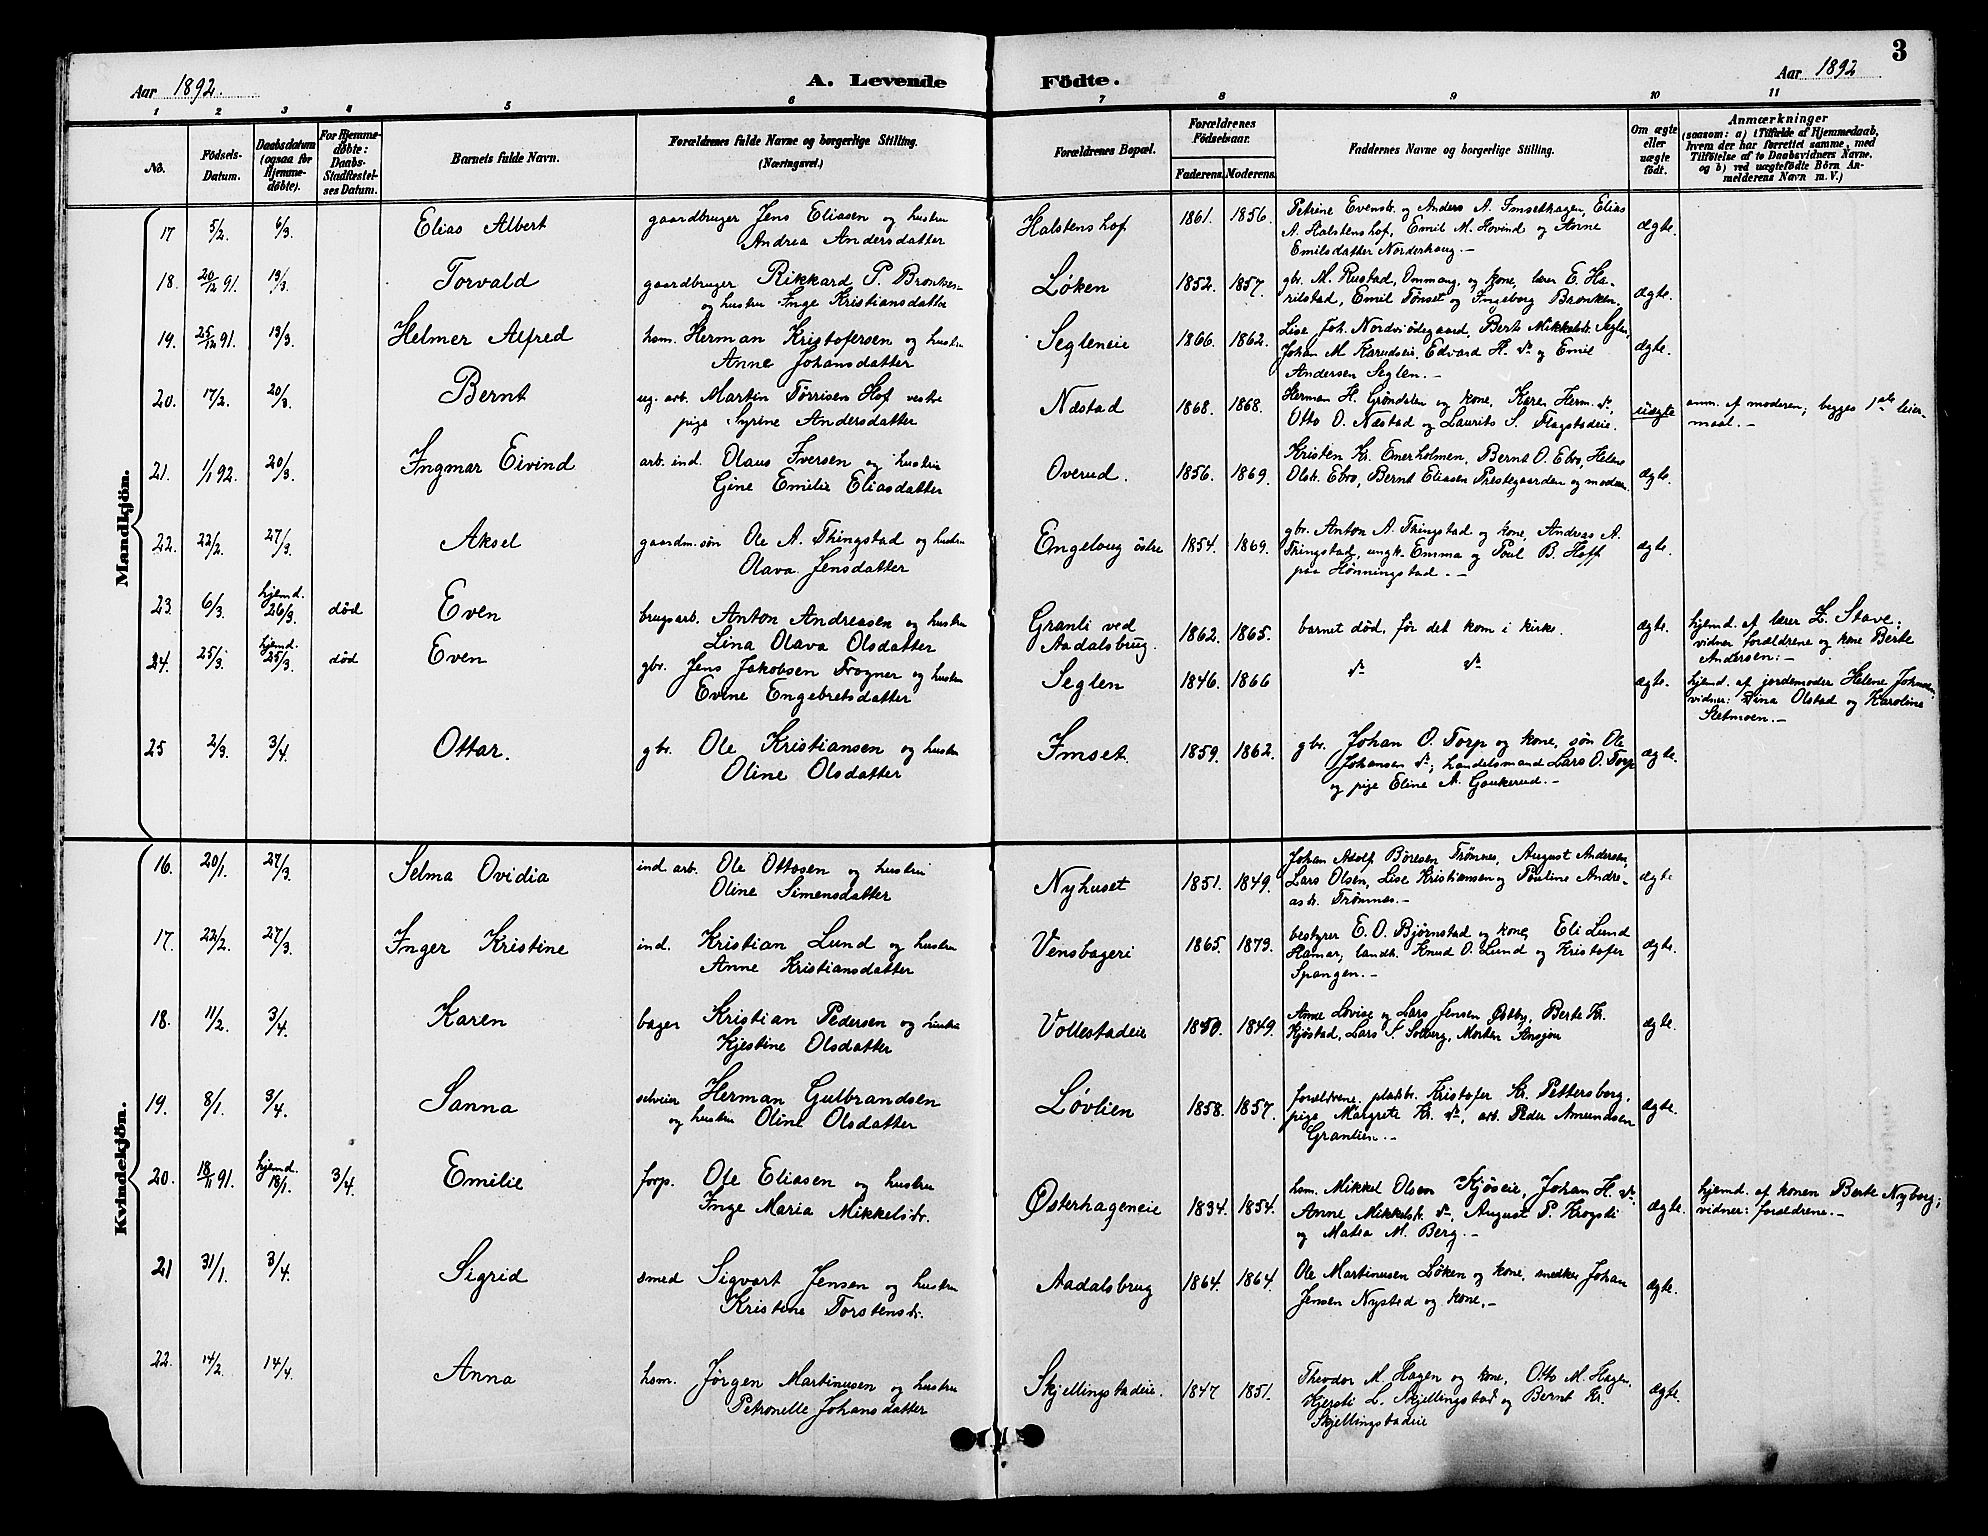 3
Aar 1892.
A. Levende Födte.
Aar 1892
1 2 3 4 5 6 7 8 9 10 11
No.
Födsels-
Datum.
Daabsdatum
(ogsaa for
Hjemme-
døbte).
For Hjemme-
døbte:
Daabs-
Stadfæstel-
ses Datum.
Barnets fulde Navn.
Forældrenes fulde Navne og borgerlige Stilling.
(Næringsvei.)
Forældrenes Bopæl.
Forældrenes
Födselsaar.
Faderens. Moderens.
Faddernes Navne og borgerlige Stilling.
Om ægte
eller
uægte
födt.
Anmærkninger
(saasom: a) i Tilfælde af Hjemmedaab,
hvem der har forrettet samme, med
Tilföielse af to Daabsvidners Navne.
og b) ved uægtefödte Börn An-
melderens Navn m. V.)
Mandkjön.
17 5/2. 6/3. Elias Albert gaardbruger Jens Eliasen og hustru
Andrea Andersdatter
Halstenshof 1861. 1856. Petrine Evenstr. og Anders A. Imsethagen, Elias
A. Halstenshof, Emil M. Hovind og Anne
Emilsdatter Norderhaug.-
ægte.
18. 20/12 91. 13/3. Torvald gaardbruger Rikkard P. Brønken
og hustru Inge Kristiansdatter
Løken 1852. 1857. gbr. M. Rustad, Ommang, og kone, lærer E. Ha-
rilstad, Emil Tønset og Ingeborg Brønken.
ægte.
19. 25/12 91. 13/3. Helmer Alfred hsm. Herman Kristofersen og hustru
Anne Johansdatter
Segleneie 1866. 1862. Lise Joh. Nordviödegaard, Berte Mikkelstr. Seglen,
Johan M. Karudseie, Edvard H. do og Emil
Andersen Seglen.-
ægte.
20. 17/2. 20/3. Bernt ug. arb. Martin Torrisen Hof vestre
pige Syrine Andersdatter
Næstad 1868. 1868. Herman H. Grøndalen og kone, Karen Herm. do,
Otto O. Næstad og Laurits S. Flagstadeie.
uægte anm. af moderen; begges 1ste leier-
maal.-
21. 1/1 92. 20/3. Ingmar Eivind arb. ind. Olaus Iversen og hustru
Gine Emilie Eliasdatter
Overud. 1856. 1869. Kristen Kr. Emerholmen, Bernt O. Ebro, Helene
Olstr. Ebro, Bernt Eliasen Prestegaarden og moderen.
ægte.
22. 22/2. 27/3. Aksel gaardm. søn Ole A. Thingstad og hustru
Olava Jensdatter
Engeloug östre 1854. 1869. gbr. Anton A. Thingstad og kone, Andreas A.
Tringstad, ungk. Emma og Poul B. Hoff
paa Hønningstad.-
ægte.
23. 6/3. hjemd. 26/3. død Even brugsarb. Anton Andreasen og hustru
Lina Olava Olsdatter
Granli ved
Aadalsbrug. 1862. 1865. barnet död, för det kom i kirke. ægte. hjemd. af lærer L. Stave;
vidner forældrene og kone Berte
Andersen.-
24. 25/3. hjemd. 25/3. død Even gbr. Jens Jakobsen Frogner og hustru
Evine Engebretsdatter
Seglen 1846. 1866 do do ægte. hjemd. af jordemoder Helene Johnsen,
vidner: Dina Olstad og Karoline
Sletmoen.-
25 2/3. 3/4. Ottar. gbr. Ole Kristiansen og hustru
Oline Olsdatter
Imset. 1859. 1862. gbr. Johan O. Torp og kone, søn Ole
Johansen do; handelsmand Lars O. Torp
og pige Eline A. Gaukerud.-
ægte.
Kvindekjön.
16. 20/1. 27/3. Selma Ovidia ind. arb. Ole Ottosen og hustru
Oline Simensdatter
Nyhuset 1851. 1849. Johan Adolf Børesen Trømnes, August Andersen,
Lars Olsen, Lise Kristiansen og Pouline Andre-
astr. Trømnes.-
ægte
17. 22/2. 27/3. Inger Kristine ind. Kristian Lund og hustru
Anne Kristiansdatter
Vensbageri 1865 1873. bestyrer E. O. Bjørnstad og kone, Eli Lund
Hamar, landh. Knud O. Lund og Kristofer
Spangen.-
ægte.
18. 11/2. 3/4. Karen bager Kristian Pedersen og hustru
Kjestine Olsdatter
Vollestadeie 1850. 1849. Anne Lovise og Lars Jensen Østby, Berte Kr.
Kjøstad, Lars S. Solberg, Morten Ansjøn
ægte.
19. 8/1. 3/4. Sanna selveier Herman Gulbrandsen
og hustru Oline Olsdatter
Løvlien 1858. 1857. forældrene, pladsbr. Kristofer Kr. Pettersborg,
pige Margrete Kr. do, arb. Peder Amundsen
Granlien.-
ægte.
20. 18/11 91. hjemd. 18/1. 3/4. Emilie forp. Ole Eliasen og hustru
Inge Maria Mikkelsdtr.
Østerhageneie 1834. 1854. hsm. Mikkel Olsen Kjøseie, Johan H. do,
Anne Mikkelstr. do, August P. Krogsti
og Matea M. Berg.-
ægte. hjemd. af konen Berte Nyborg;
vidner: forældrene.-
21 31/1. 3/4. Sigrid smed Sigvart Jensen og hustru
Kristine Torstensdr.
Aadalsbrug 1864. 1864. Ole Martinusen Løken og kone, snedker Johan
Jensen Nystad og kone.-
ægte.
22. 14/2. 14/4. Anna hsm. Jørgen Martinusen og hustru
Petronelle Johansdatter
Skjellingstadeie. 1847 1851. Theodor M. Hagen og kone, Otto M. Hagen,
Kjersti L. Skjellingstad og Bernt Kr.
Skjellingstadeie
ægte.